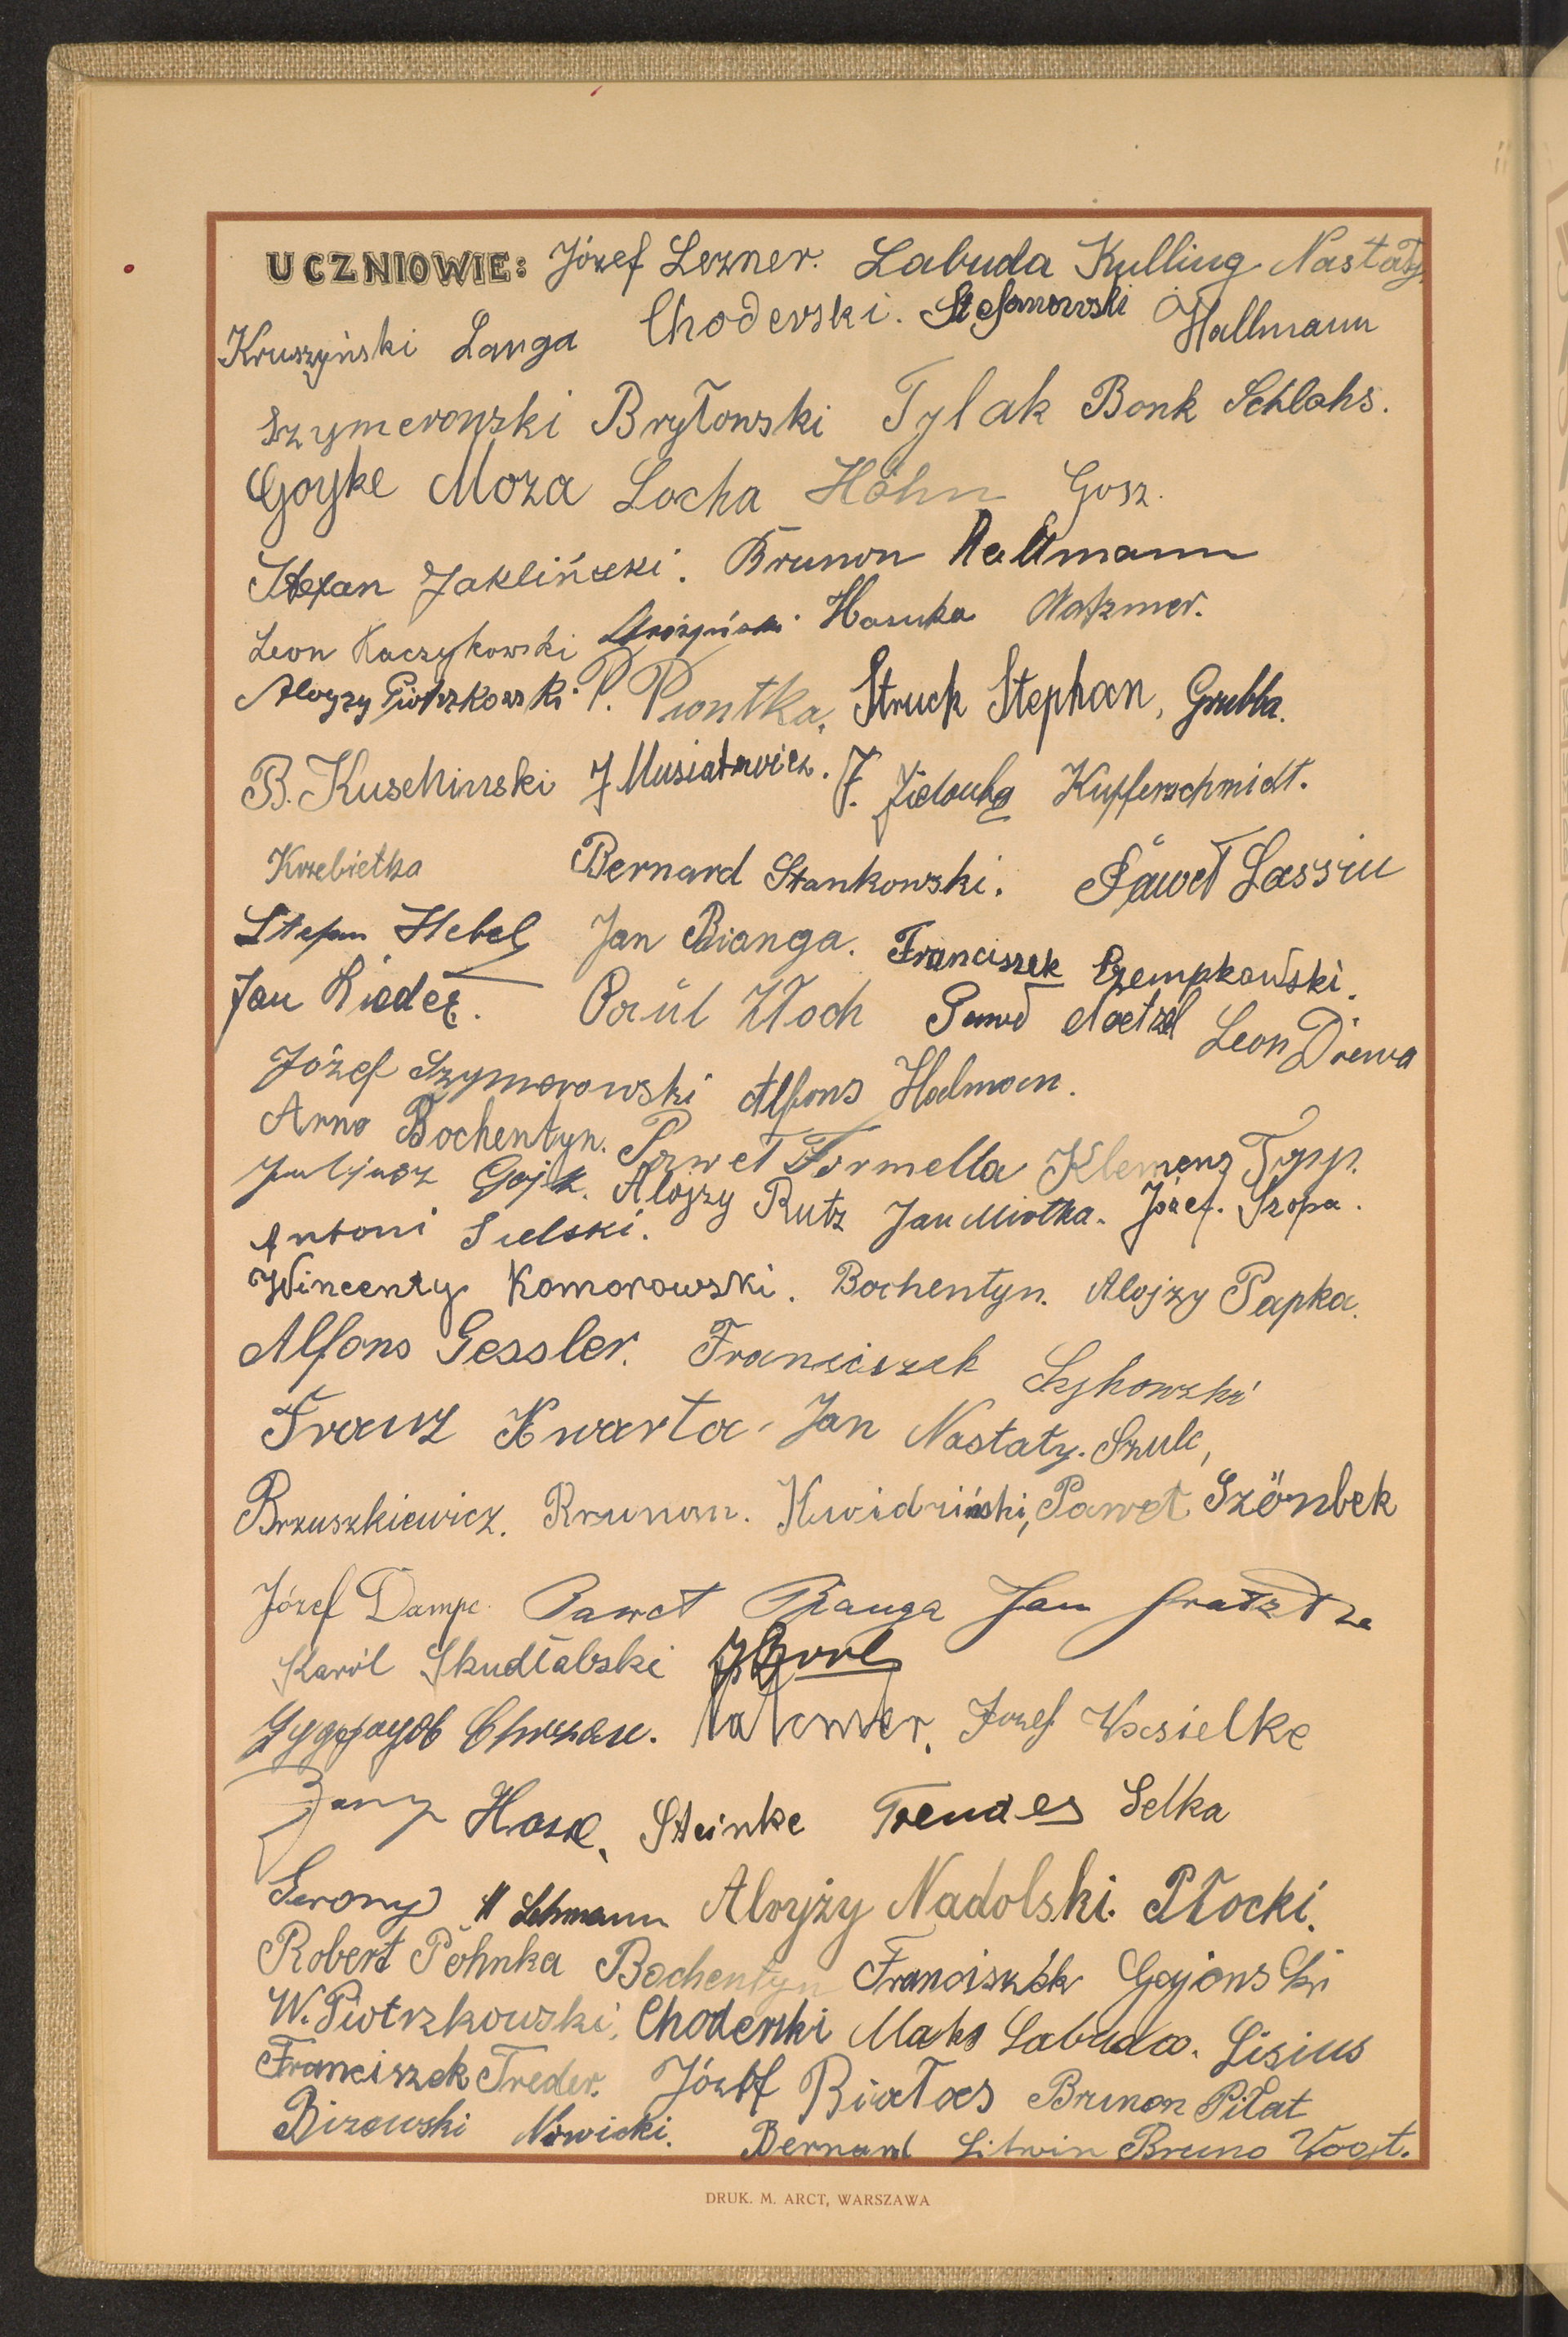 UCZNIOWIE: Józef Lezner. Labuda Kulling Nastały
Kruszyński Langa Choderski. Stefanowski Hallmann
Szymerowski Bryłowski Tylak Bonk Schlahs.
Goyke Moza Locha Höhn Gosz.
Stefan Jakliński. Brunon Hallmann
Leon Kaczykowski Hasuka Natzmer.
Alojzy Piotrzkowski P. Piontka, Struck Stephan, Grubba.
B. Kuschinski J Musiałowicz. J. Kupferschmidt.
Krebietka Bernard Stankowski. Paweł Lassin
Stefan Hebel Jan Bianga. Franciszek Czempkowski.
Jan Rieder. Paul Włoch Paweł Noetzel Leon Drewa
Józef Szymerowski Alfons Halman.
Arno Bochentyn. Paweł Formella Klemens Typ.
Juljusz Gojk. Alojzy Rutz Jan Miotka. Józef. Szopa.
Antoni Sielski.
Wincenty Komorowski. Bochentyn. Alojzy Papka.
Alfons Gessler. Franciszek Sychowski
Franz Kwarta. Jan Nastały. Szulc,
Brzuszkiewicz. Brunon. Kwidziński, Paweł Szönbek
Józef Dampc. Paweł Bianga Jan
Karól Skudlabski
Chrzan. Natzmer. Józef Wesielke
Hase, Steinke Trendes Selka
Gerony H Lehmann Alojzy Nadolski. Płocki.
Robert Pöhnka Bochentyn Franciszek Gojowski
W. Piotrzkowski, Choderski Maks Labuda. Lisius
Franciszek Treder. Józef Białas Brunon Piłat
Bizewski Nowicki. Bernard Litwin Bruno Voogt.
DRUK. M. ARCT, WARSZAWA